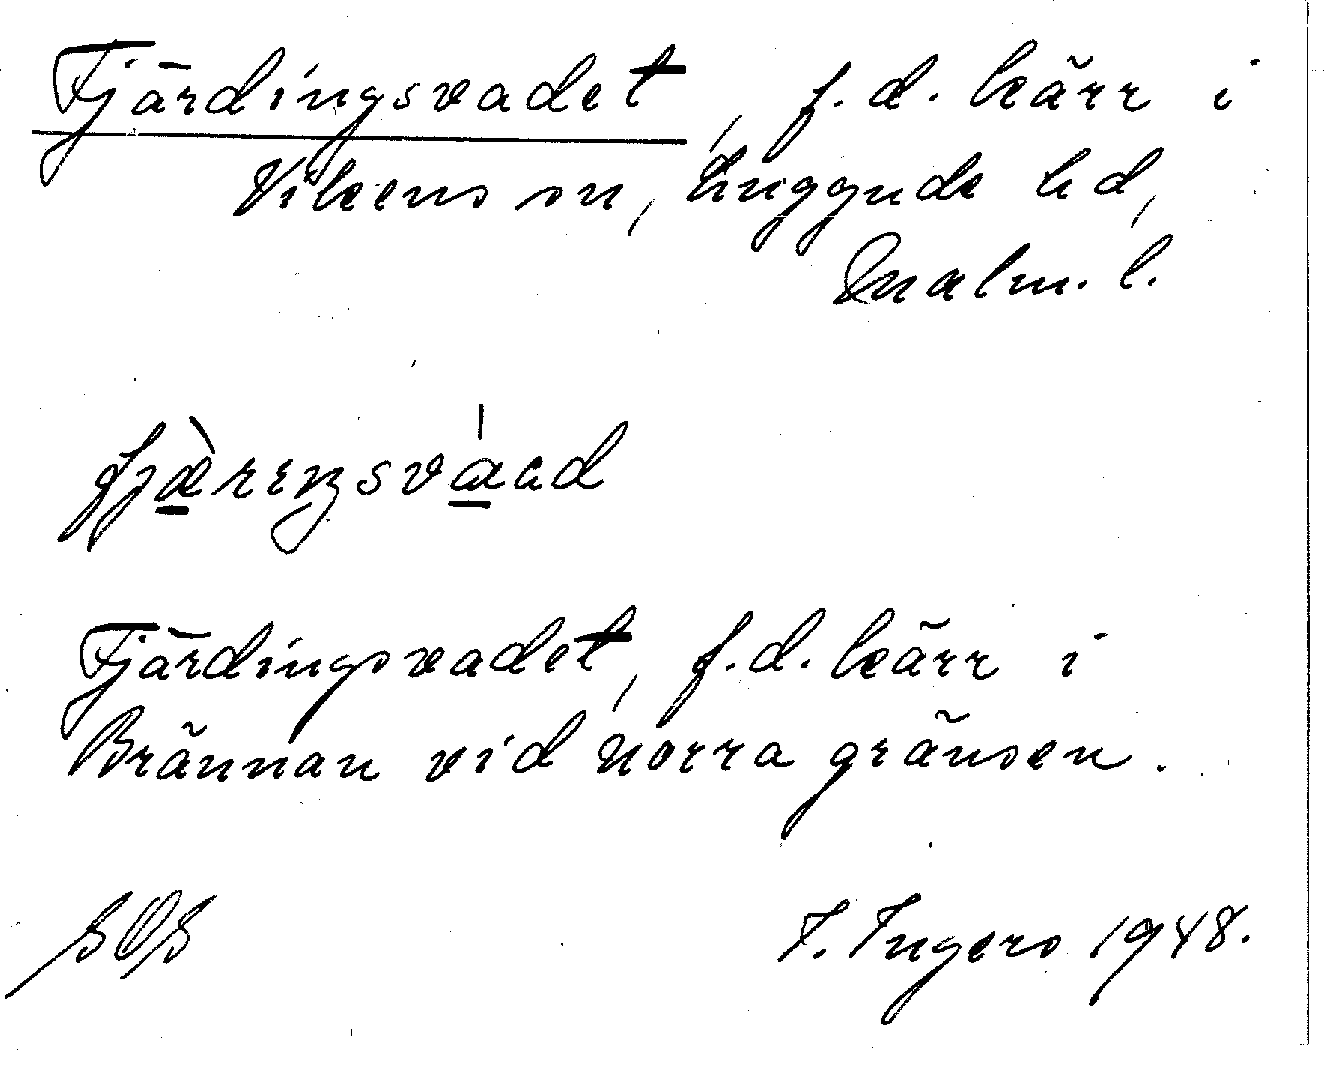 Fjärdingsvadet, f.d. kärr i
Vikens sn, Luggude hd,
Malm. l.
fjæ̀rıŋsváad
Fjärdingsvadet, f.d. kärr i
Brännan vid norra gränsen.
SOS I. Ingers 1948.